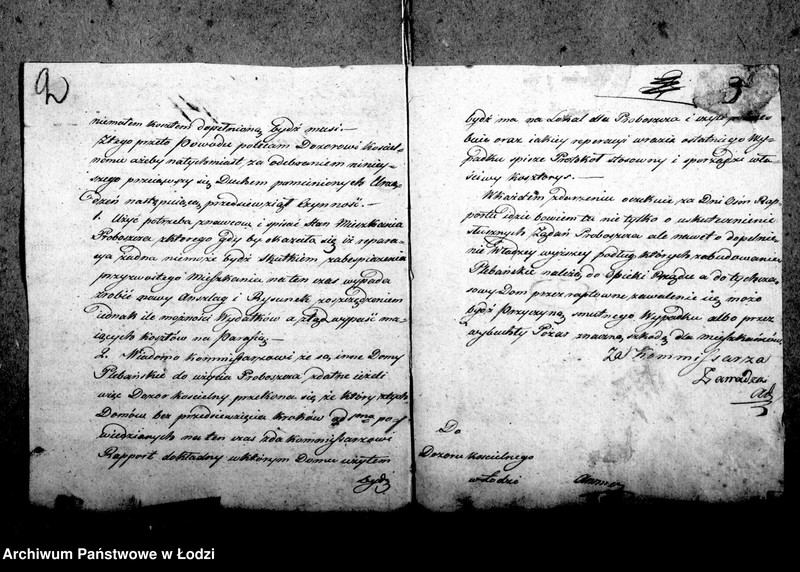 2
niemałem kosztem dopełnianą bydź musi.—
Z tego przeto Powodu polecam Dozorowi kościel-
nemu ażeby natychmiast za odebraniem niniey-
szego
Dzień następuiące przedsiewziął Czynność.—
1. Użyć potrzeba znawców i spisać Stan Mieszkania
Proboszcza z którego gdy by okazało się iż repara-
cya żadna niemoże bydź skutkiem zabespieczenia
przyzwoitego Mieszkania na ten czas wypada
zrobić nowy Anszlag i Rysunek
iednak ile możności Wydatków a ztąd wypaść ma-
iących kosztów na Parafią.—
2. Wiadomo Kommissarzowi że są inne Domy
Plebańskie do użycia Proboszcza zdatne ieżeli
więc Dozor kościelny przekona się że który z tych
Domów bez przedsiewzięcia kroków
wiedzianych na ten czas zda Kommissarzowi
Rapport dokładny w którym Domu użytem
bydź
3
bydź ma na lokal dla Proboszcza i czyli
buie oraz iakiey reperacyi w razie ostatniego Wy-
padku spisze Protokół stosowny i sporządzi wła-
ściwy kosztorys.—
W każdem zdarzeniu oczekuię za Dni Ośm Rap-
portu idzie bowiem tu nie tylko o uskutecznienie
słusznych Żądań Proboszcza ale nawet o dopełnie-
nie Władzy wyższey podług których zabudowania
Plebańskie należą do Opieki Rządu a dotychcza-
sowy Dom przez raptowne zawalenie się może
bydź Przyczyną smutnego Wypadku albo przez
wybuchły Pożar znaczną szkodą dla mieszkańców
Za Kommissarza
Zawadzki
Do
Dozoru kościelnego
w Łodzi
Archiwum Państwowe w Łodzi